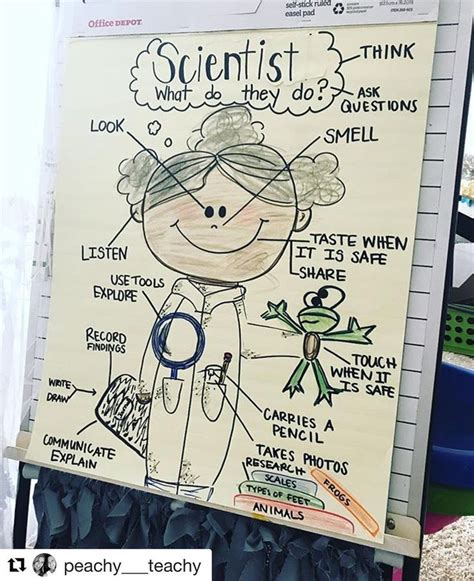 Office DEPOT
self-stick ruled
easel pad
Scientist
What do they do?
THINK
ASK
QUESTIONS
LOOK
SMELL
LISTEN
TASTE WHEN
IT IS SAFE
SHARE
USE TOOLS
EXPLORE
RECORD
FINDINGS
TOUCH
WHEN IT
IS SAFE
WRITE
DRAW
CARRIES A
PENCIL
COMMUNICATE
EXPLAIN
TAKES PHOTOS
RESEARCH
SCALES
TYPES OF FEET
FROGS
ANIMALS
peachy___teachy